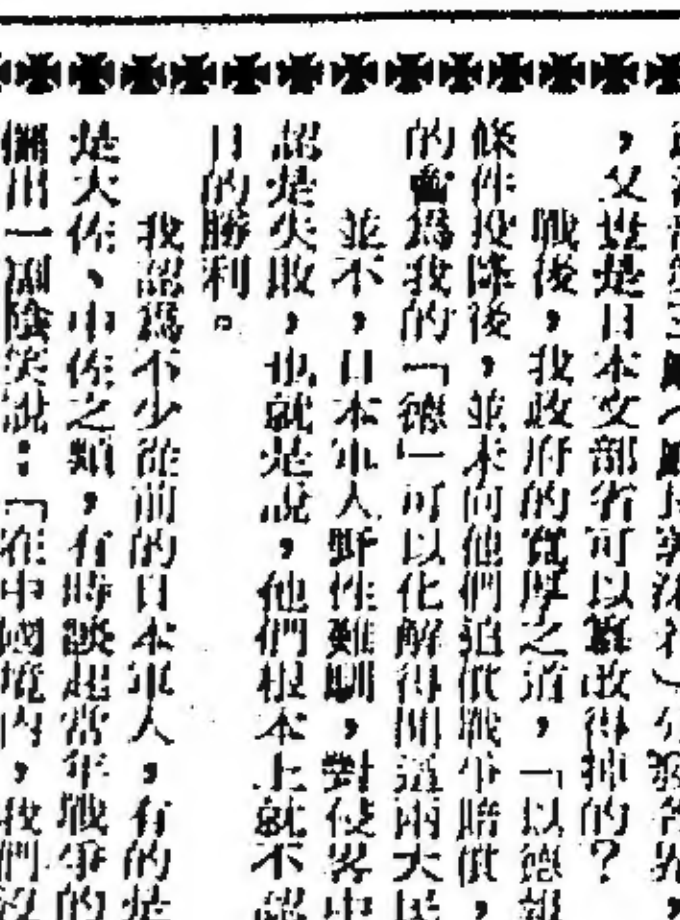 ，又豈是日本文部省可以竄改得掉的？
戰後，我政府的寬厚之道，「以德報
條件投降後，並未向他們追償戰爭賠償，
的為我的「德」可以化解得開這兩大民
並不，日本軍人野性難馴，對侵略中
認是失敗，也就是說，他們根本上就不認
的勝利。
我認為不少從前的日本軍人，有的是
是大佐、中佐之類，有時談起當年戰爭的
出一副陰笑說：「在中國境内，我們沒